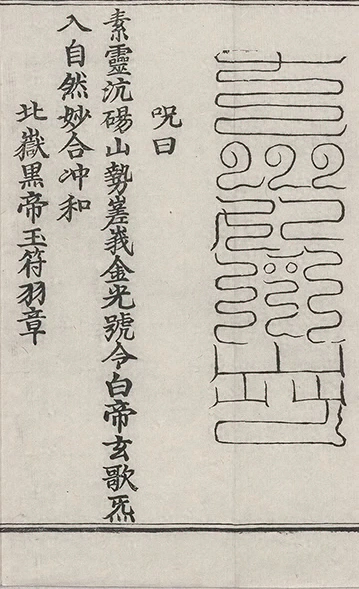 呪曰
素靈沆碭山勢嵳峩金光號令白帝玄歌炁
入自然妙合冲和
北嶽黑帝玉符羽章